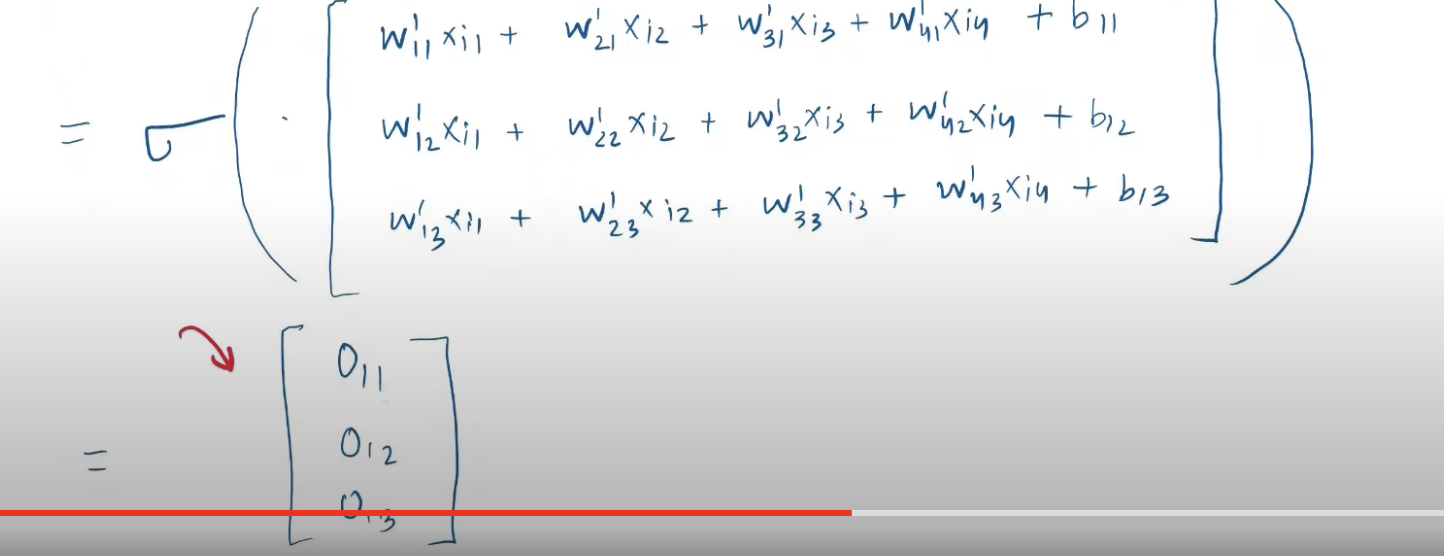 w¹₁₁ xᵢ₁ + w¹₂₁ xᵢ₂ + w¹₃₁ xᵢ₃ + w¹₄₁ xᵢ₄ + b₁₁
= σ ( [ w¹₁₂ xᵢ₁ + w¹₂₂ xᵢ₂ + w¹₃₂ xᵢ₃ + w¹₄₂ xᵢ₄ + b₁₂ ] )
w¹₁₃ xᵢ₁ + w¹₂₃ xᵢ₂ + w¹₃₃ xᵢ₃ + w¹₄₃ xᵢ₄ + b₁₃
O₁₁
= [ O₁₂ ]
O₁₃